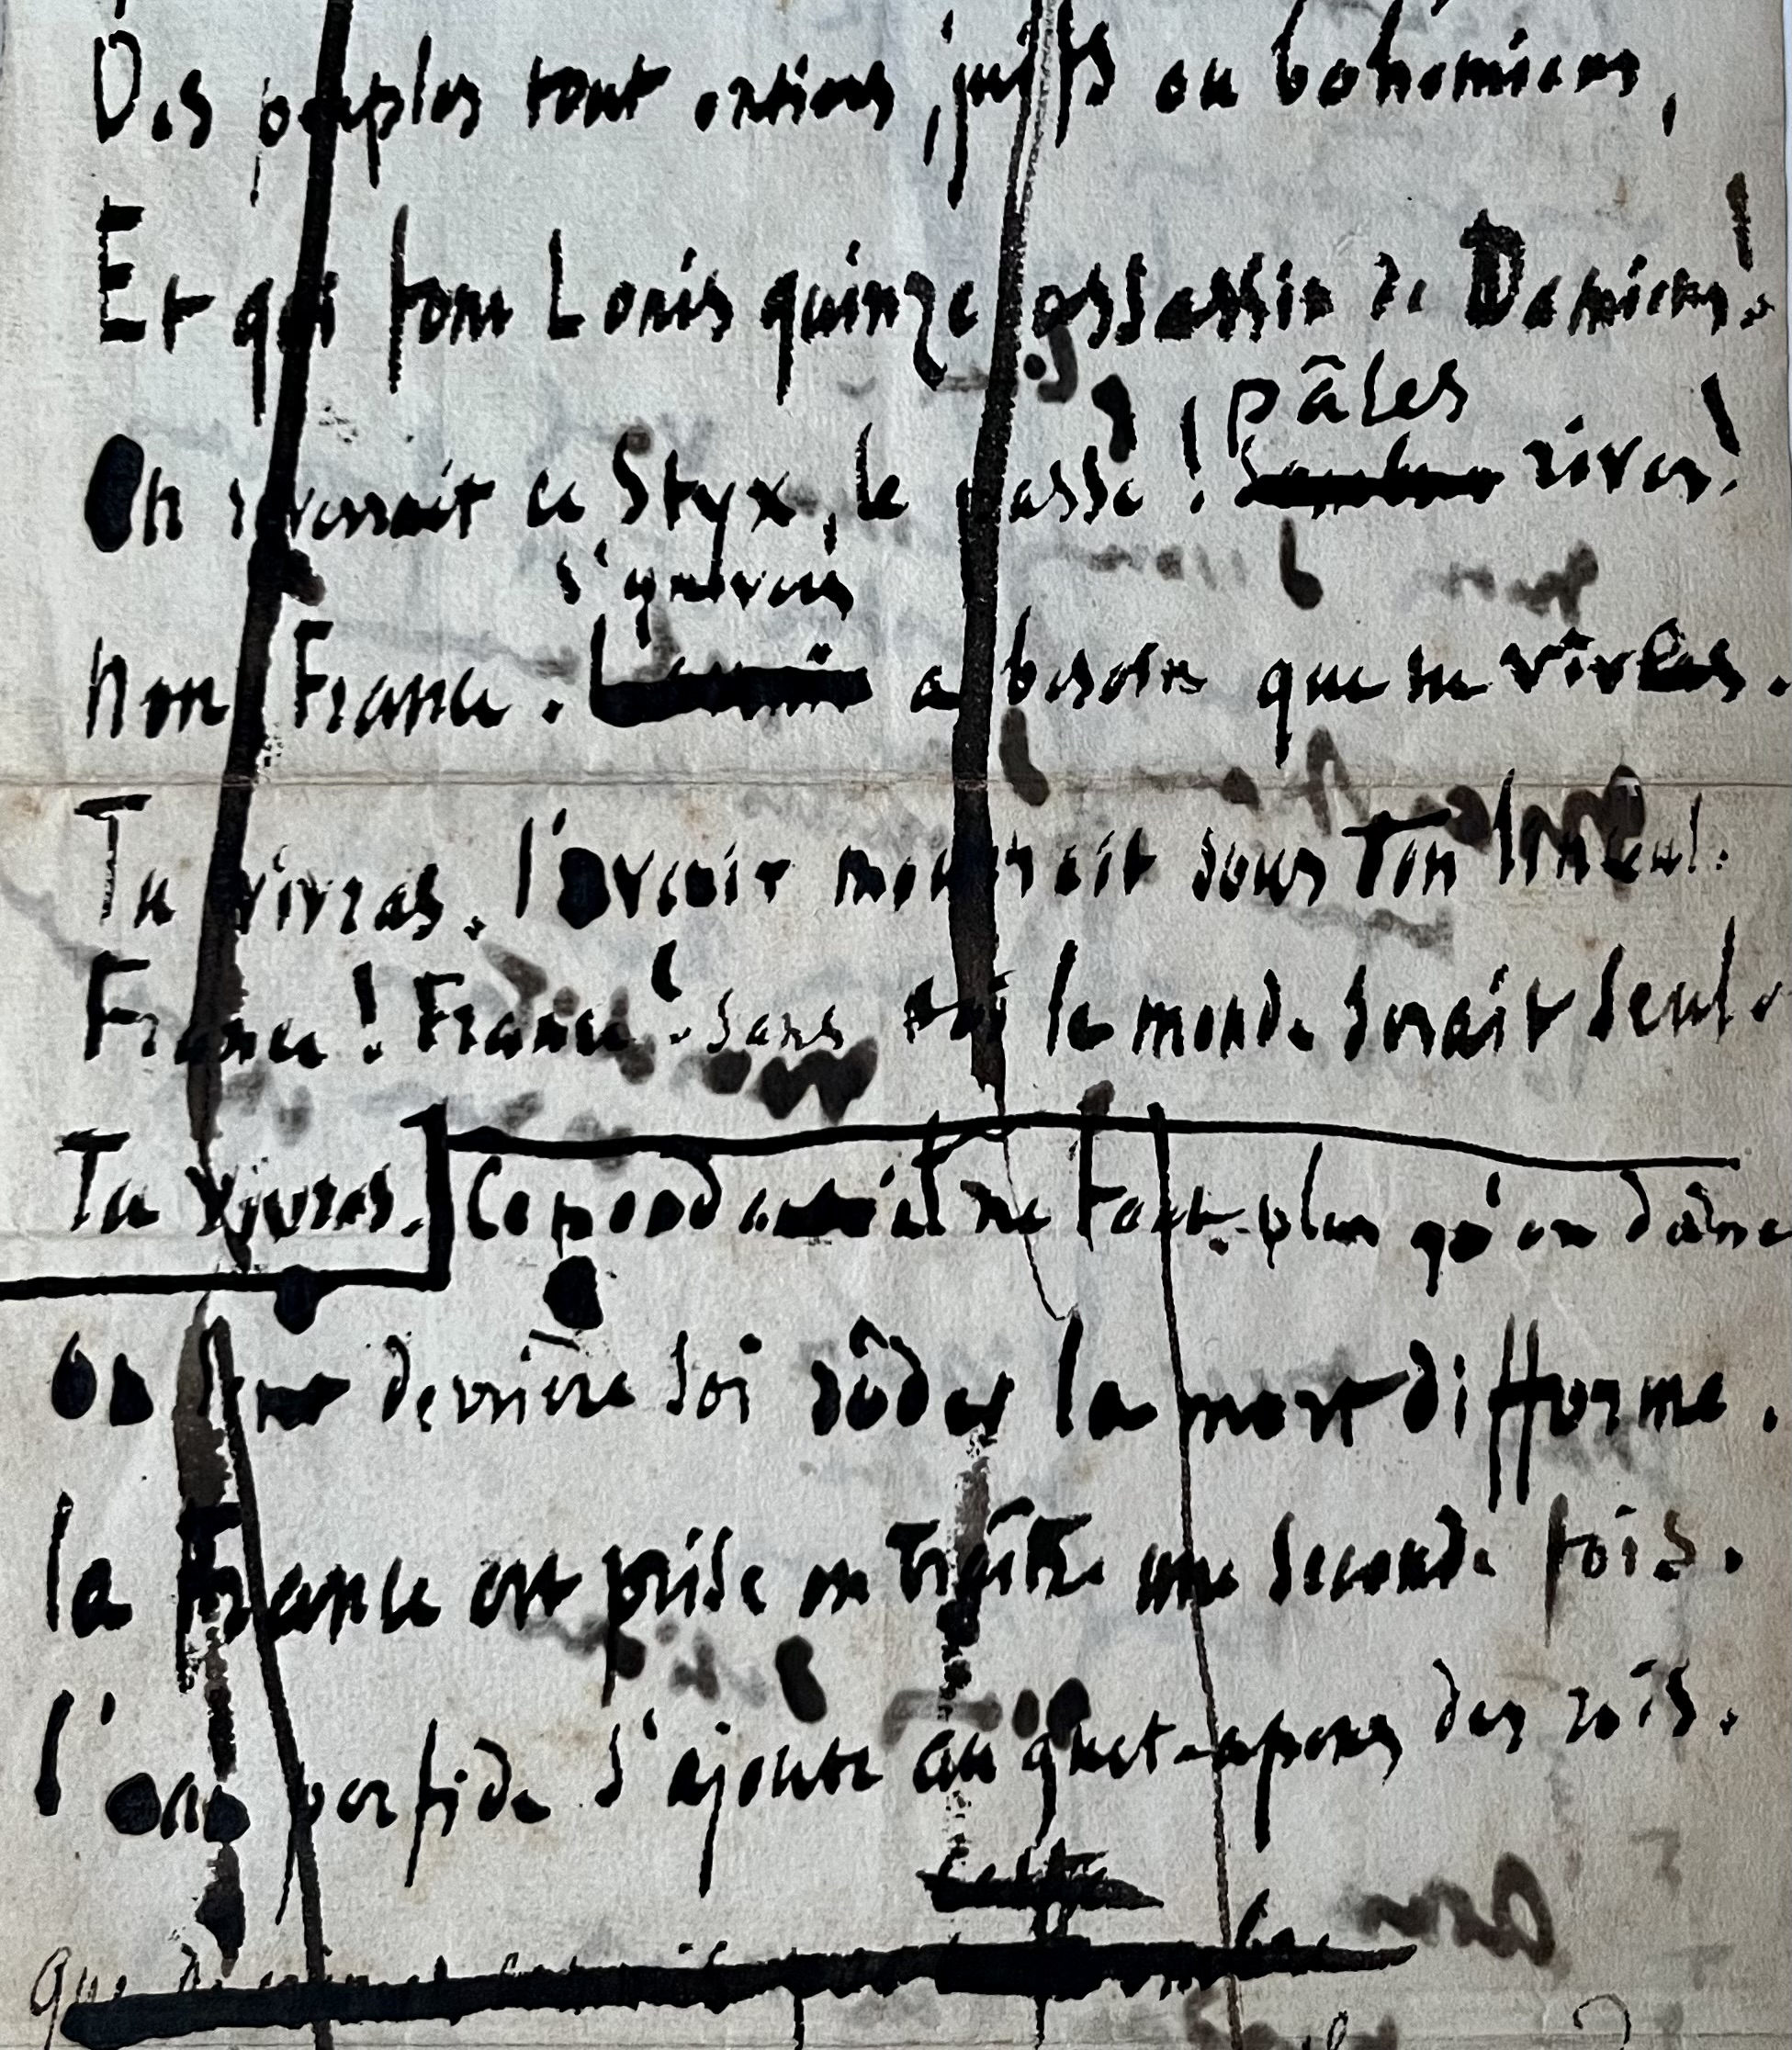 Des peuples tout entiers, juifs ou bohémiens,
Et qui font Louis quinze assassin de Damiens!
pâles
On reverrait ce Styx, le passé! rives!
s'ouvrir
Non France. L'avenir a besoin que tu vives.
Tu vivras. l'avenir mourrait sous ton linceul.
France! France! Sans toi le monde serait seul.
Tu vivras. Cependant il ne faut plus qu'on dorme
on sent derrière soi rôder la mort difforme.
la France est prise en traître une seconde fois.
l'eau perfide s'ajoute au guet-apens des rois.
Que